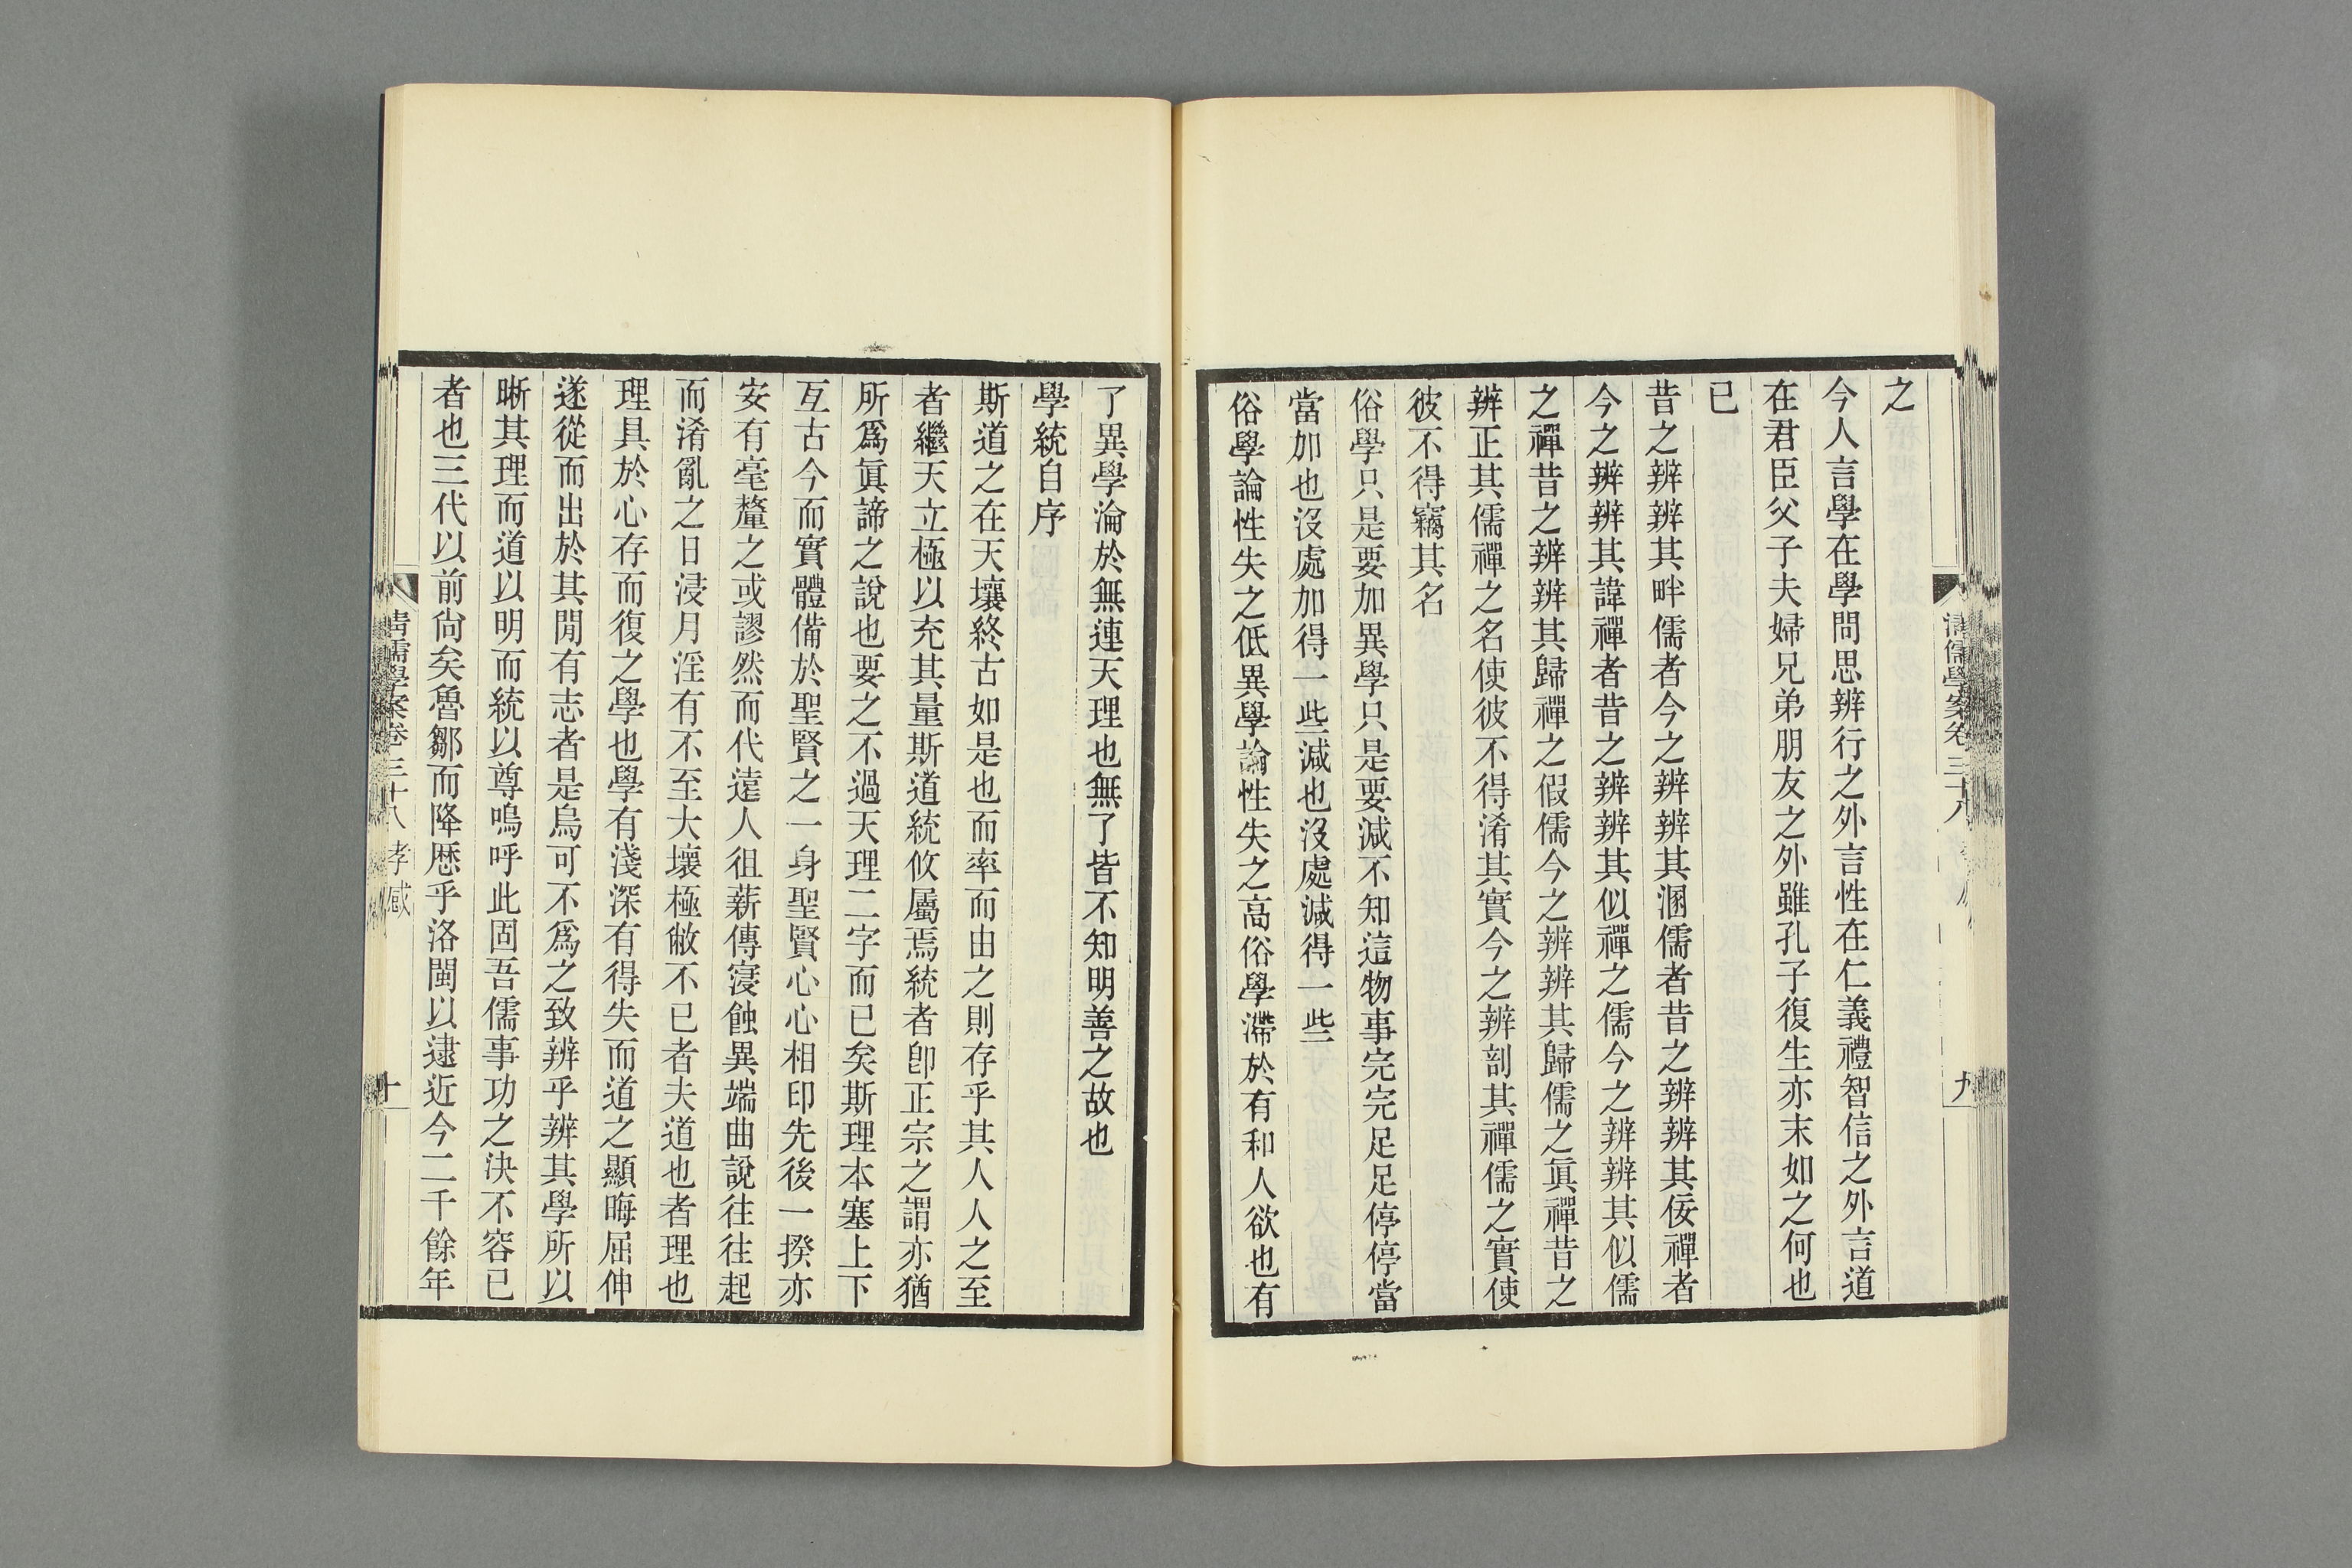 清儒學案卷三十八
九
之
今人言學在學問思辨行之外言性在仁義禮智信之外言道
在君臣父子夫婦兄弟朋友之外雖孔子復生亦末如之何也
已
昔之辨辨其畔儒者今之辨辨其溷儒者昔之辨辨其佞禪者
今之辨辨其諱禪者昔之辨辨其似禪之儒今之辨辨其似儒
之禪昔之辨辨其歸禪之假儒今之辨辨其歸儒之眞禪昔之
辨正其儒禪之名使彼不得淆其實今之辨剖其禪儒之實使
彼不得竊其名
俗學只是要加異學只是要減不知這物事完完足足停停當
當加也沒處加得一些減也沒處減得一些
俗學論性失之低異學論性失之高俗學滯於有和人欲也有
了異學淪於無連天理也無了皆不知明善之故也
學統自序
斯道之在天壤終古如是也而率而由之則存乎其人人之至
者繼天立極以充其量斯道統攸屬焉統者卽正宗之謂亦猶
所爲眞諦之說也要之不過天理二字而已矣斯理本塞上下
互古今而實體備於聖賢之一身聖賢心心相印先後一揆亦
安有毫釐之或謬然而代遠人徂薪傳寖蝕異端曲說往往起
而淆亂之日浸月淫有不至大壞極敝不已者夫道也者理也
理具於心存而復之學也學有淺深有得失而道之顯晦屈伸
遂從而出於其閒有志者是烏可不爲之致辨乎辨其學所以
晰其理而道以明而統以尊嗚呼此固吾儒事功之決不容已
者也三代以前尙矣魯鄒而降厯乎洛閩以逮近今二千餘年
清儒學案卷三十八 孝感
十